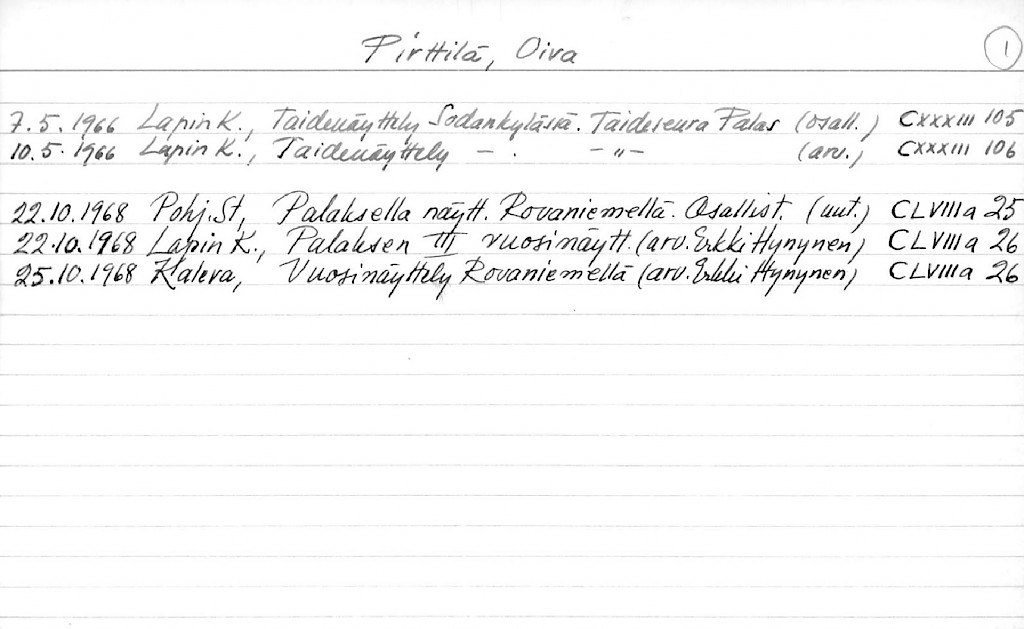 Pirttilä, Oiva 1
7.5.1966 Lapin K., Taidenäyttely Sodankylässä. Taideseura Palas (osall.) CXXXIII 105
10.5.1966 Lapin K., Taidenäyttely - . - " - (arv.) CXXXIII 106
22.10.1968 Pohj.St, Palaksella näytt. Rovaniemellä. Osallist. (uut.) CLVIII a 25
22.10.1968 Lapin K., Palaksen III vuosinäytt. (arv. Erkki Hynynen) CLVIII a 26
25.10.1968 Kaleva, Vuosinäyttely Rovaniemellä (arv. Erkki Hynynen) CLVIII a 26